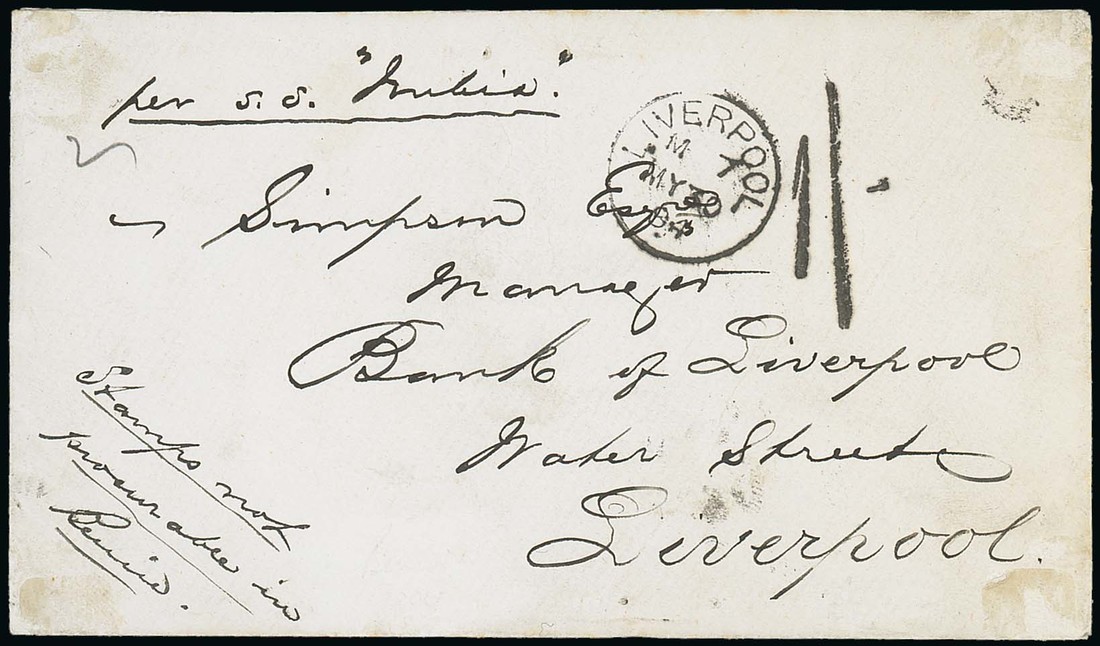 per s.s. "Nubia."
LIVERPOOL
M
MY 30
Simpson Esqre
Manager
Bank of Liverpool
Water Street
Liverpool.
1/-
Stamps not
procurable in
Benin.